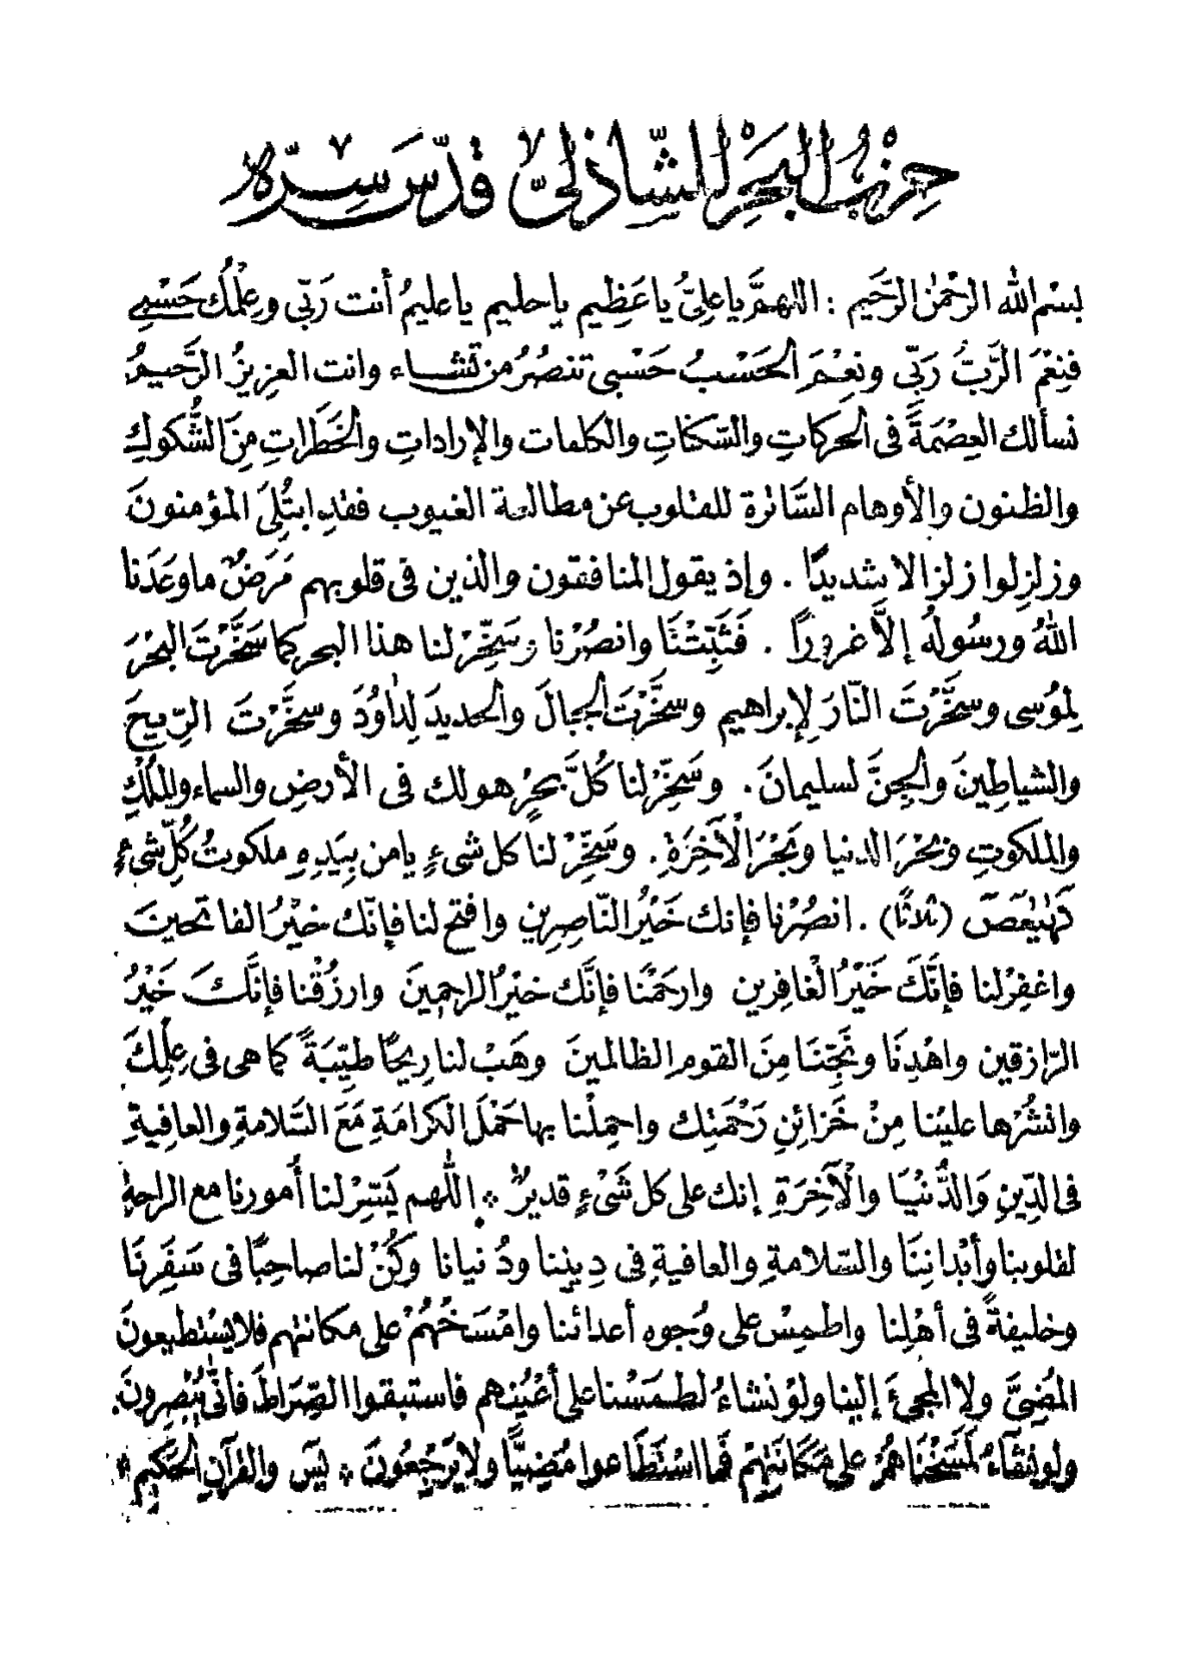 حِزْبُ الْبَحْرِ لِلشَّاذلىّ قدّسَ سِرّه
بِسْمِ اللّه الرّحْمٰن الرَّحَيم : اللهمَّ يا عَلِىُّ يا عَظِيم يا حليم يا عليمُ أنت رَبّى وعِلْمُك حَسْبِى
فنِعْمَ الرَّبُّ رَبّى ونِعْمَ الحَسْبُ حَسْبى تنصُرُ من تَشاء وانت العزيزُ الرَّحيمُ
نسألك العِصْمَةَ فى الحركاتِ والسّكناتِ والكلمات والإراداتِ والخَطَراتِ مِنَ الشُّكوكِ
والظنون والأوهام السَّاترة للقلوب عن مطالعة الغيوب فقدِ ابتُلِىَ المؤمنونَ
وزلزِلوا زلزالا شديدًا . وإذ يقول المنافقون والذين فى قلوبهم مَرَضٌ ما وعَدَنا
اللهُ ورسُولهُ إلاَّ غرورًا . فَثَبِّتْنَا وانصُرْنا وسَخِّرْ لنا هذا البحر كما سَخَّرْتَ البَحْرَ
لِمُوسى وسَخَّرْتَ النّارَ لإبراهيم وسَخَّرْتَ الجبالَ والحديدَ لِدَاوُدَ وسخَّرْتَ الرّيحَ
والشياطِينَ والجِنَّ لسليمانَ . وسَخِّرْ لنا كُلَّ بحرٍ هولك فى الأرضِ والسماء والمُلْكِ
والملكوتِ وبَحْرَ الدنيا وبَحْرَ الْآخِرَةِ . وسَخِّرْ لنا كل شىءٍ يامن بِيَدِهِ ملكوتُ كُلِّ شىءٍ
كهيعص (ثلاثًا) . انصُرْنا فإنك خَيْرُ النّاصِرِين وافتح لنا فإنّك خيْرُ الفاتحينَ
واغفِرْ لنا فإنَّكَ خَيْرُ الْغافِرين وارحَمْنا فإنَّك خيْرُ الراحِمِينَ وارزُقْنا فإنَّكَ خَيْرُ
الرّازقين واهْدِنَا ونَجِّنَا مِنَ القومِ الظالمينَ وهَبْ لنا رِيحًا طيّبَةً كما هى فى عِلْمِكَ
وانشُرْها عليْنا مِنْ خَزائنِ رَحْمَتِك واحمِلْنا بها حَمْلَ الكرامَةِ مَعَ السَّلامةِ والعافيةِ
فى الدِّينِ وَالدُّنْيَا والْآخِرَةِ إنك على كل شَىْءٍ قديرٌ * اللّهم يَسِّرْ لنا أمورنا مع الراحةِ
لقلوبنا وأبْدانِنَا والسّلامةِ والعافيةِ فى دِيننا ودُنيانا وكُنْ لنا صاحِبًا فى سَفَرِنَا
وخليفةً فى أهْلِنا واطمِسْ على وُجوهِ أعدائنا وامْسَخْهُمْ على مكانتهم فلا يسْتطيعونَ
المُضِىَّ ولا المجِىءَ إلينا ولوْ نشاءُ لطمَسْنا على أعْيُنهم فاستبقوا الصِّرَاطَ فأنّى يُبْصِرونَ .
ولو نشَاءُ لمَسَخْنَاهُمْ على مَكَانَتِهِمْ فَما اسْتَطَاعوا مُضِيًّا ولا يَرْجِعُونَ * يسَ والقرآنِ الحَكيمِ *